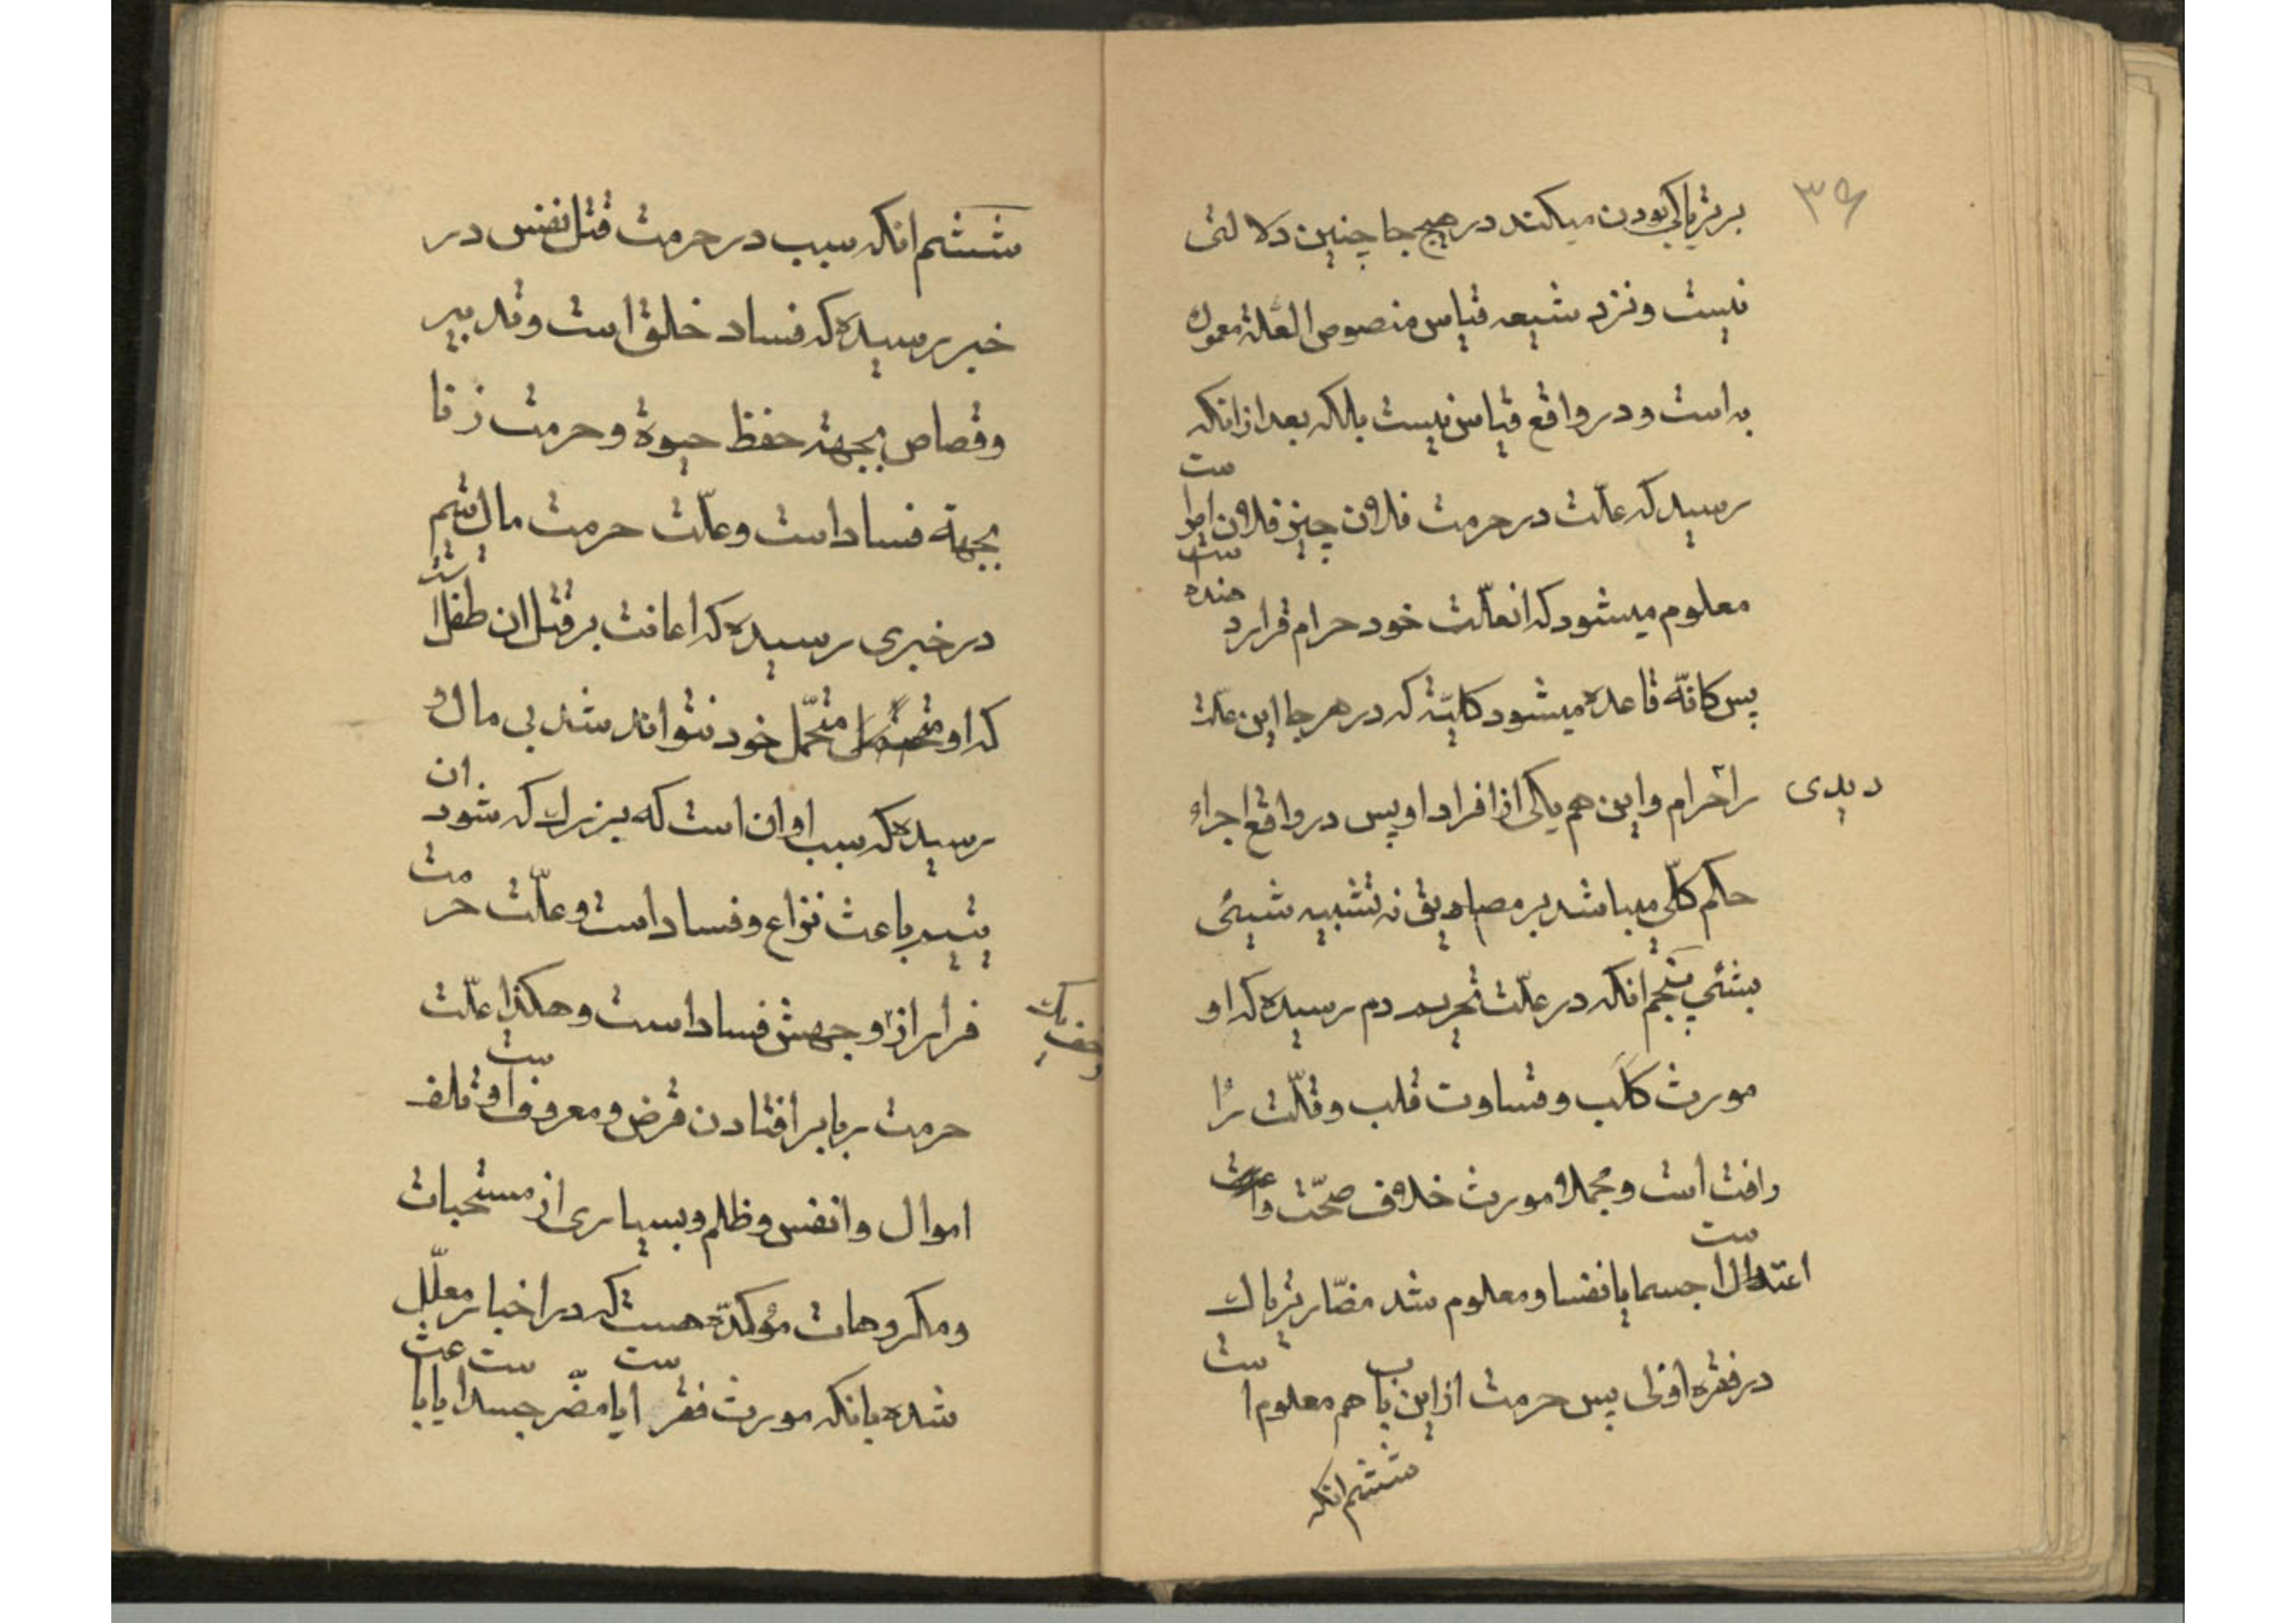 ۳۶
بر تریاکی بودن میکند در هیچ جا چنین دلالتی
نیست و نزد شیعه قیاس منصوص العلّة معمول
به است و در واقع قیاس نیست بلکه بعد از آنکه
رسید که علّت در حرمت فلان چیز فلان امر است
معلوم میشود که انعلّت خود حرام قرار دهنده است
پس کانّه قاعده میشود کلیّة که در هر جا این علت
دیدی
را حرام و این هم یکی از افراد او پس در واقع اجراء
حکم کلّی میباشد بر مصادیق نه تشبیه شیئی
بشئی پنجم انکه در علّت تحریم دم رسیده که او
مورث کَلَب و قساوت قلب و قلّت
رافت است و مجملا مورث خلاف صحّت و
اعتدال است جسما یا نفسا و معلوم شد مضارّ تریاک
در فقره اولی پس حرمت از این باب هم معلوم است
ششم انکه
ششم انکه سبب در حرمت قتل نفس در
خبر رسیده که فساد خلق است و تدبیر
و قصاص بجهة حفظ حیوة و حرمت زنا
بجهة فساد است و علّت حرمت مال یتیم
در خبری رسیده که اعانت بر قتل ان طفل است
که او متحمّل خود نتواند شد بی مال و
رسیده که سبب او ان است که بزرک که شود ان
یتیم باعث نزاع و فساد است و علّت حرمت
فرار از او جهش فساد است و هکذا علّت
حرمت ربا بر افتادن قرض و معروف است و تلف
اموال و انفس و ظلم و بسیاری از مستحبات
و مکروهات مؤکدّه هست که در اخبار معلّل
شده بانکه مورث فقر است یا مضرّ جسد است یا باعث